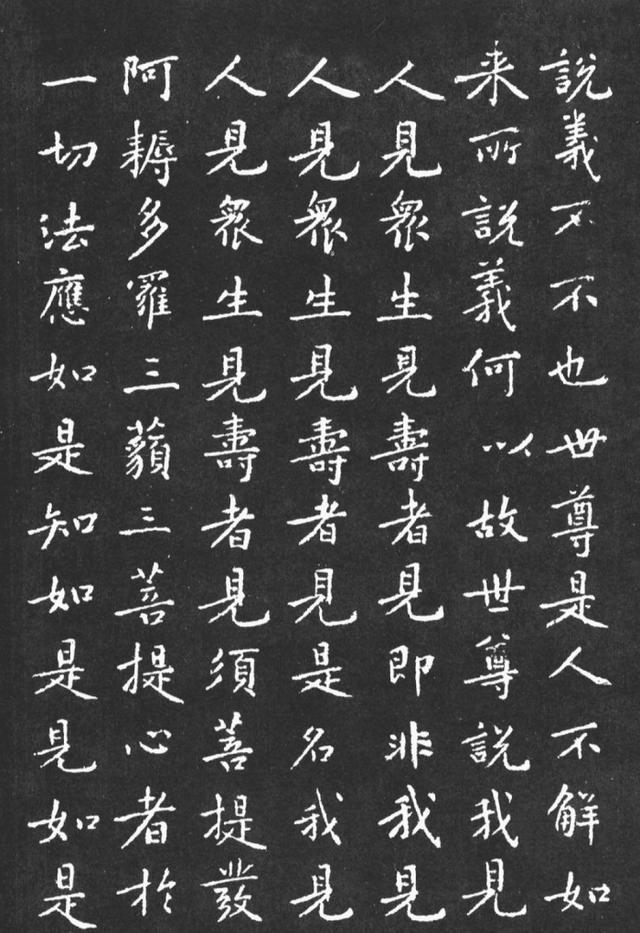 說義不不也世尊是人不解如
来所說義何以故世尊說我見
人見眾生見壽者見即非我見
人見眾生見壽者見是名我見
人見眾生見壽者見須菩提發
阿耨多羅三藐三菩提心者於
一切法應如是知如是見如是